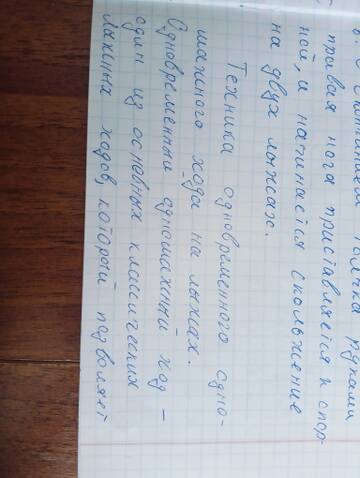 правая нога приставляется к опор-
ной, и начинается скольжение
на двух лыжах.
Техника одновременного одно-
шажного хода на лыжах.
Одновременный одношажный ход -
один из основных классических
лыжных ходов, который позволяет